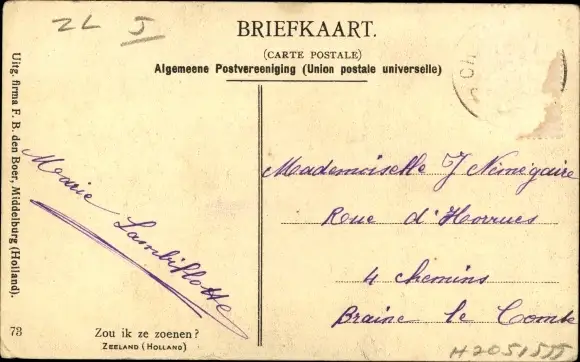 ZL J
BRIEFKAART.
(CARTE POSTALE)
Algemeene Postvereeniging (Union postale universelle)
Uitg. firma F. B. den Boer, Middelburg (Holland).
Marie Lambillotte
Mademoiselle J Nimégaire
Roue d'Horrues
4 chemins
Braine le Comte
73
Zou ik ze zoenen?
ZEELAND (HOLLAND)
H2051555